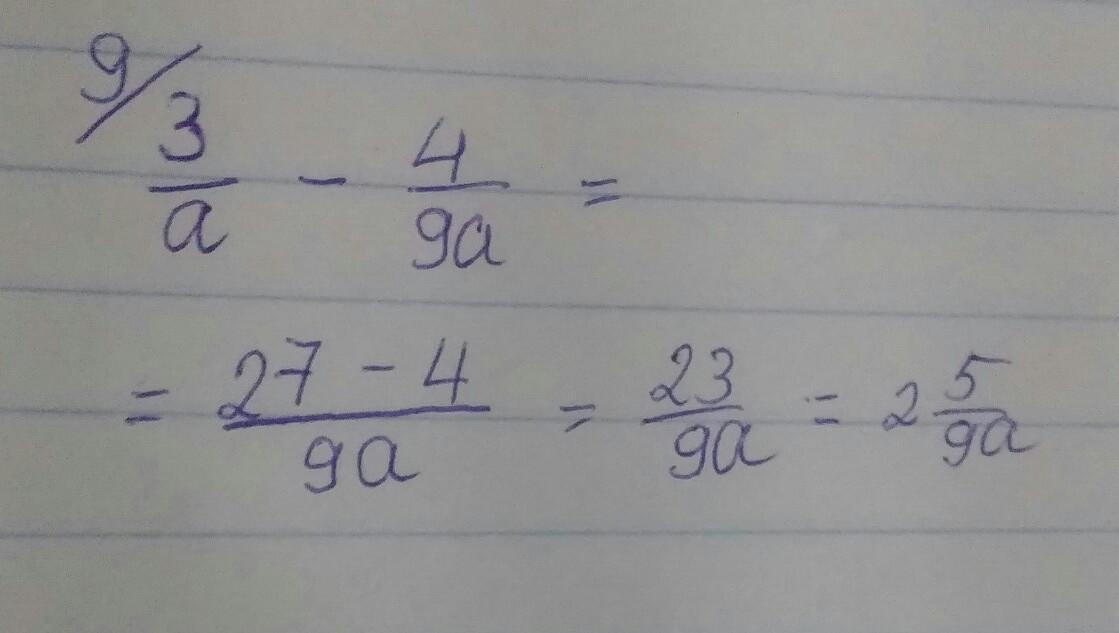 9/ 3/a - 4/9a =
= 27 - 4/9a = 23/9a = 2 5/9a